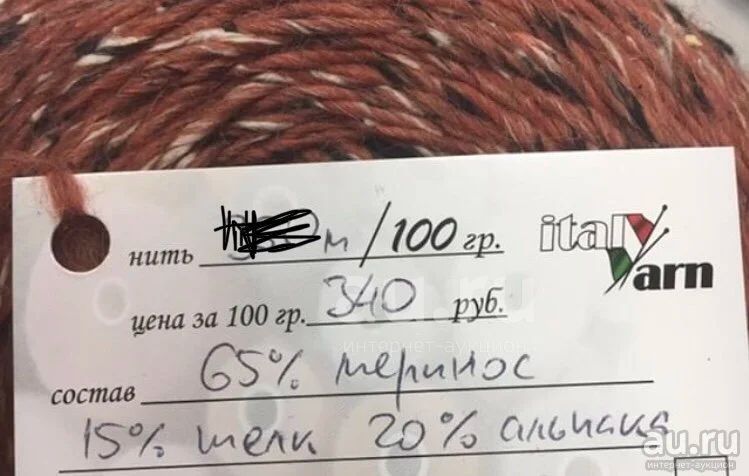 нить м/100 гр.
italy yarn
цена за 100 гр. 340 руб.
состав 65% меринос
15% шелк 20% альпака
au.ru
интернет-аукцион
au.ru
интернет-аукцион